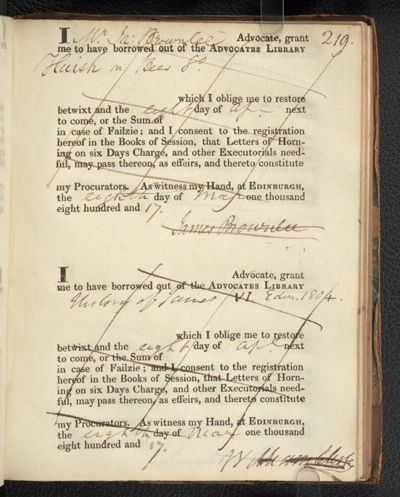 219.
I Mr. Ja: Brownlee Advocate, grant
me to have borrowed out of the ADVOCATES LIBRARY
Huish on Bees 8o.
which I oblige me to restore
betwixt and the eighth day of next
to come, or the Sum of
in case of Failzie; and I consent to the registration
hereof in the Books of Session, that Letters of Horn-
ing on six Days Charge, and other Executorials need-
ful, may pass thereon, as effeirs, and thereto constitute
my Procurators. As witness my Hand, at EDINBURGH,
the eighth day of May one thousand
eight hundred and 17.
James Brownlee
I Advocate, grant
me to have borrowed out of the ADVOCATES LIBRARY
History of James VI. Edin. 1804.
which I oblige me to restore
betwixt and the eighth day of next
to come, or the Sum of
in case of Failzie; and I consent to the registration
hereof in the Books of Session, that Letters of Horn-
ing on six Days Charge, and other Executorials need-
ful, may pass thereon, as effeirs, and thereto constitute
my Procurators. As witness my Hand, at EDINBURGH,
the eighth day of May one thousand
eight hundred and 17.